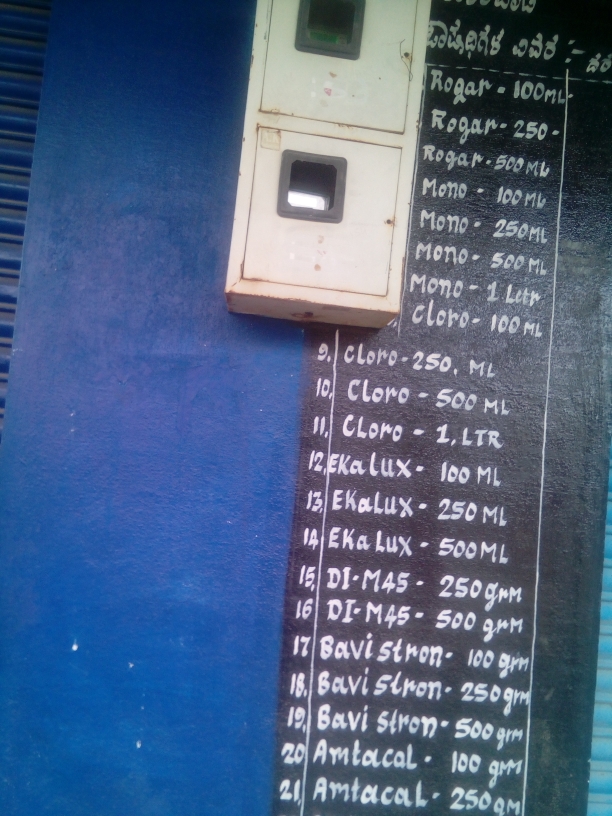 ಔಷಧಿಗಳ ವಿವರ :-
Rogar - 100ML
Rogar - 250 -
Rogar - 500 ML
Mono - 100ML
Mono - 250ML
Mono - 500 ML
Mono - 1 Lttr
Cloro - 100 ML
9. Cloro - 250. ML
10. Cloro - 500 ML
11. Cloro - 1. LTR
12. EKalux - 100 ML
13. EKaLUX - 250 ML
14. EKaLUX - 500ML
15. DI-M45 - 250 grm
16 DI-M45 - 500 grm
17 Bavi stron - 100 grm
18. Bavi stron - 250 grm
19. Bavi stron - 500 grm
20 Amtacal - 100 grm
21. Amtacal - 250 gm